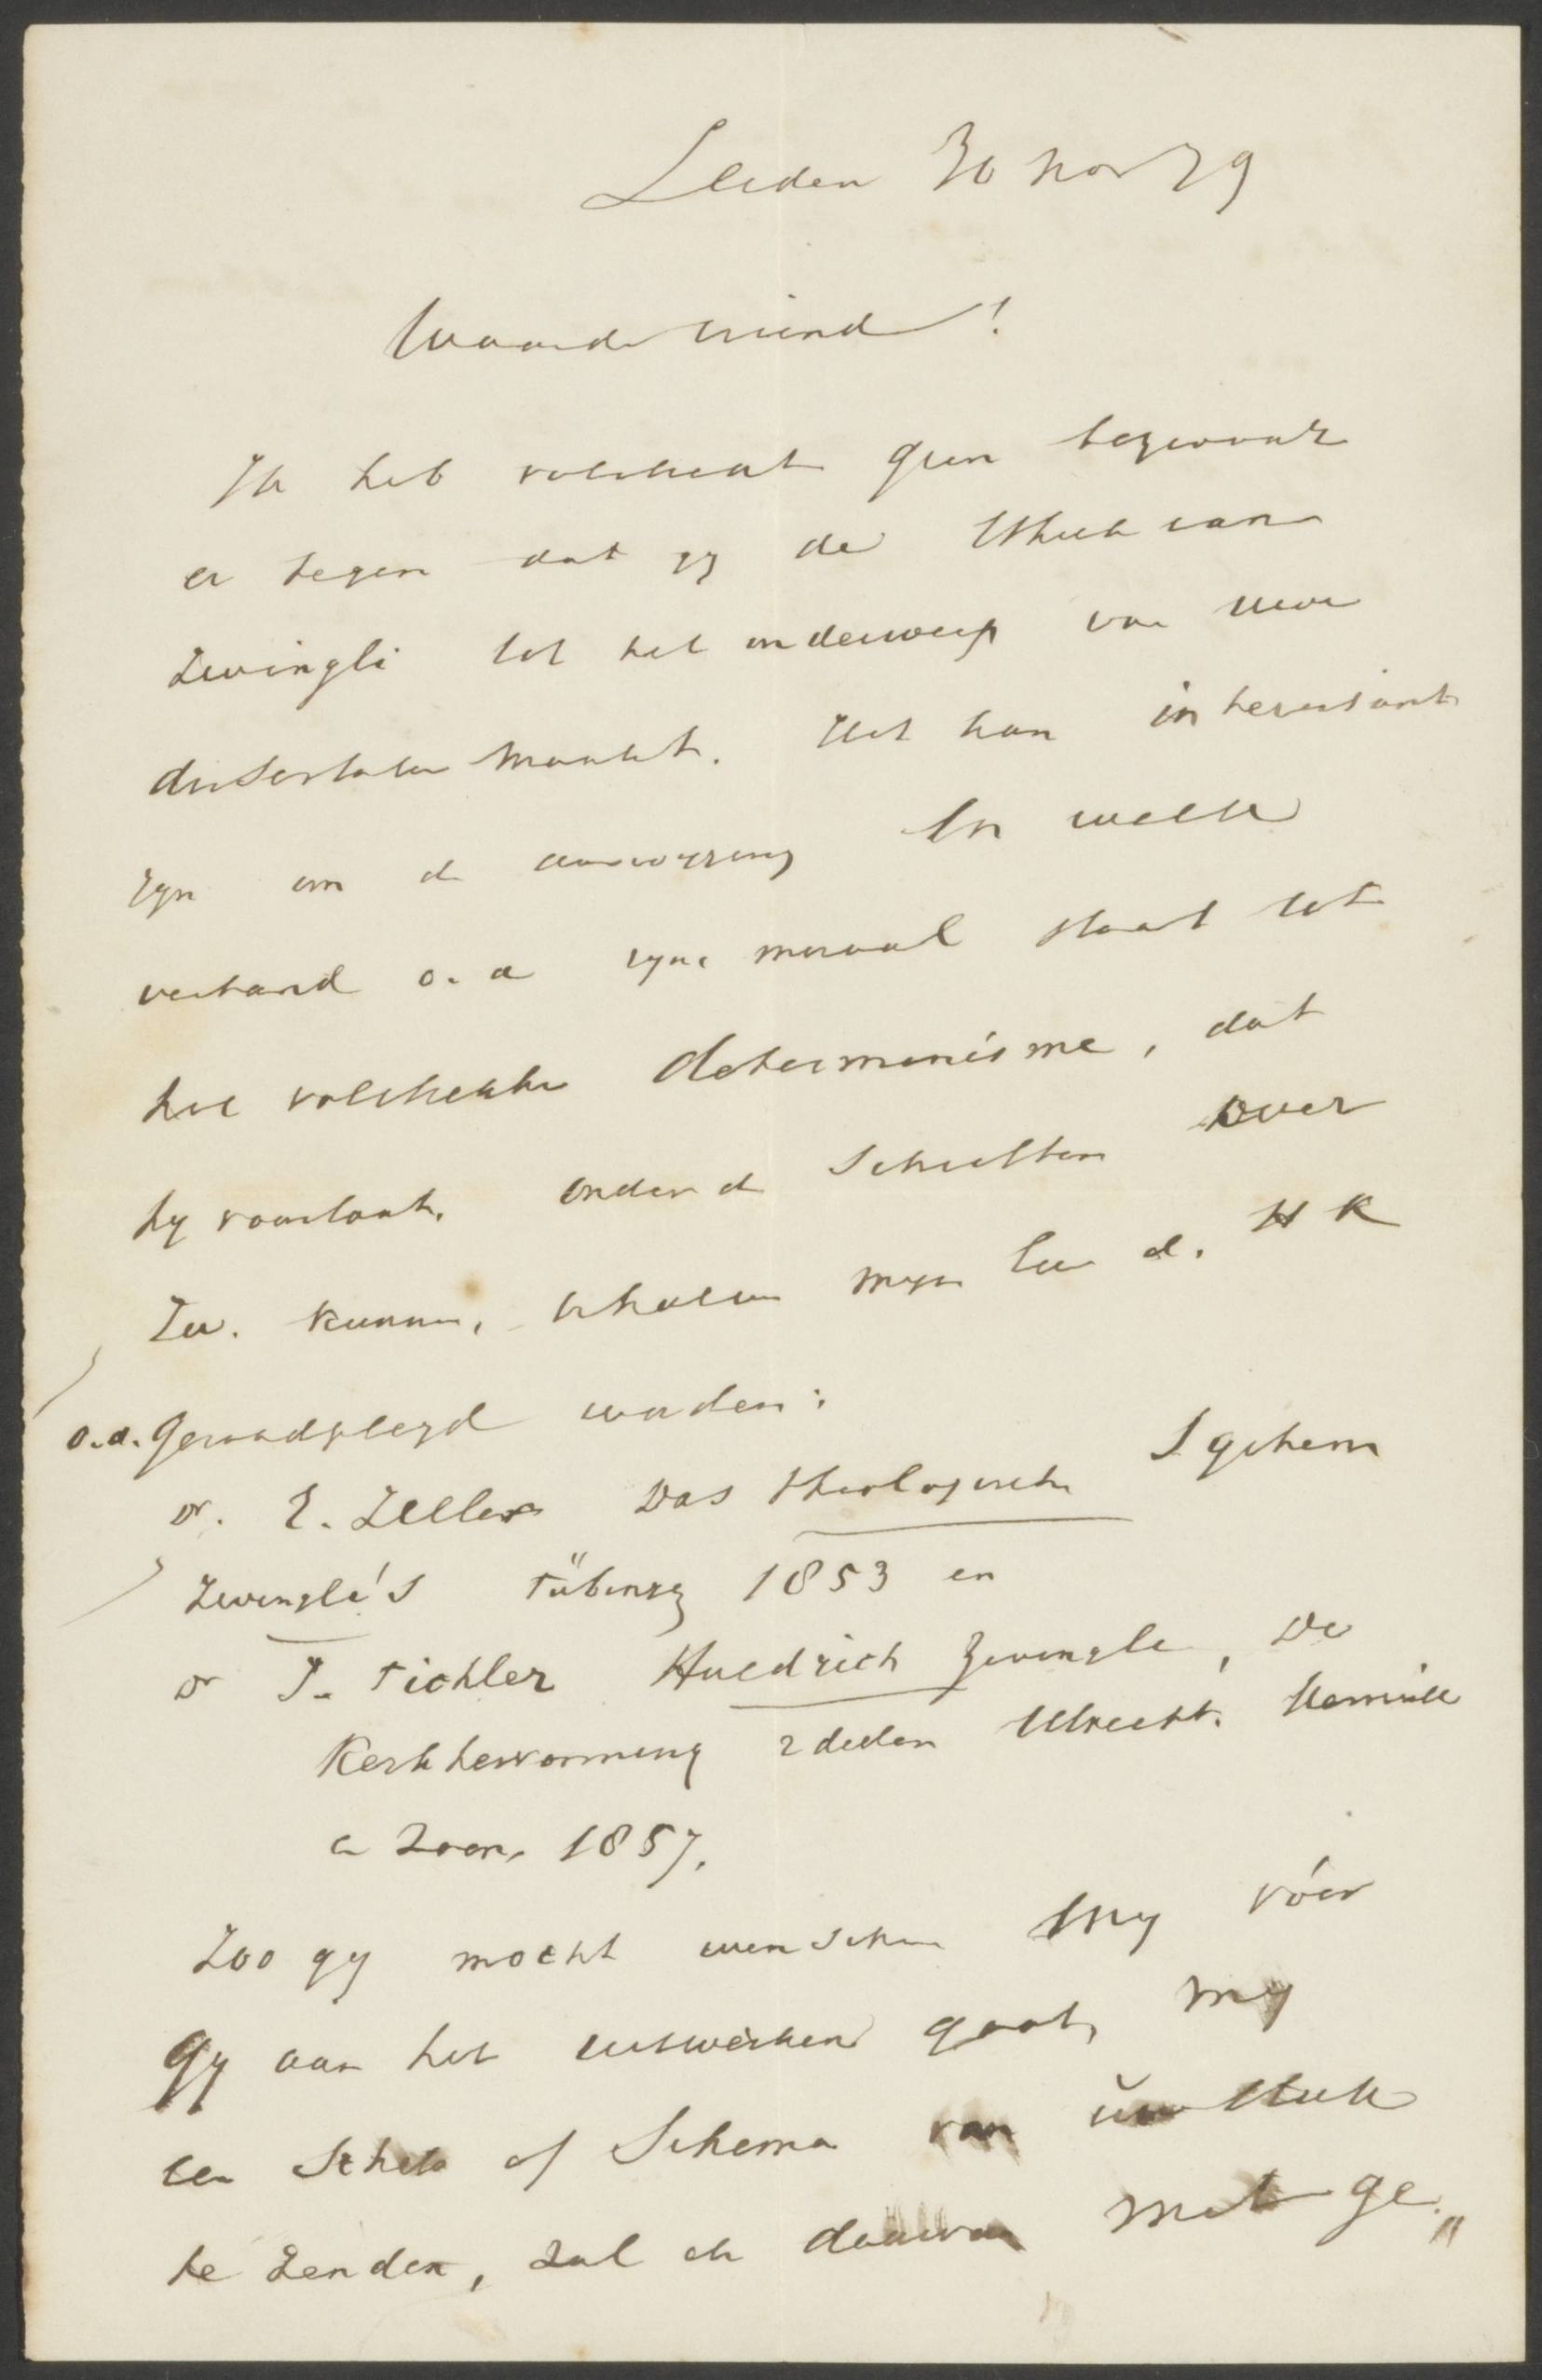 Leiden 30 Nov 79
Waarde vriend!
Ik heb volstrekt geen bezwaar
er tegen dat gij de Ethiek van
Zwingli tot het onderwerp van uwe
dissertatie maakt. Het kan interessant
zijn om de aanwijzing in welk
verband o.a zijne moraal staat tot
het volstrekte determinisme, dat
hij voorstaat. Onder de schriften over
Zw. kunnen, behalve mijn Leer d. H K
o.a. geraadpleegd worden:
Dr. E. Zeller Das theologische System
Zwingli's Tübingen 1853 en
Dr J. Tichler Huldrich Zwingli, De
Kerkhervormer 2 deelen Utrecht. Kemink
en Zoon. 1857.
Zoo gij mocht wenschen mij vóór
gij aan het uitwerken gaat, mij
een Schets of Schema van uw stuk
te zenden, zal ik daarvan met ge„